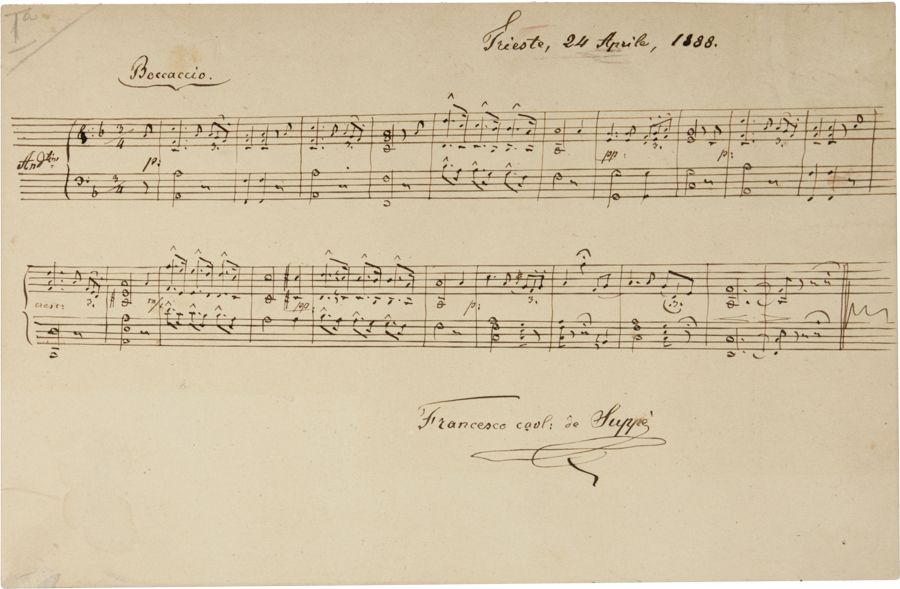 Ta
Trieste, 24 Aprile, 1888.
Boccaccio.
3/4
Andtino
p:
3/4
3.
3.
3.
pp:
3.
p:
3.
cresc
3.
3.
pp:
p:
3.
3.
Francesco cavl: de Suppè